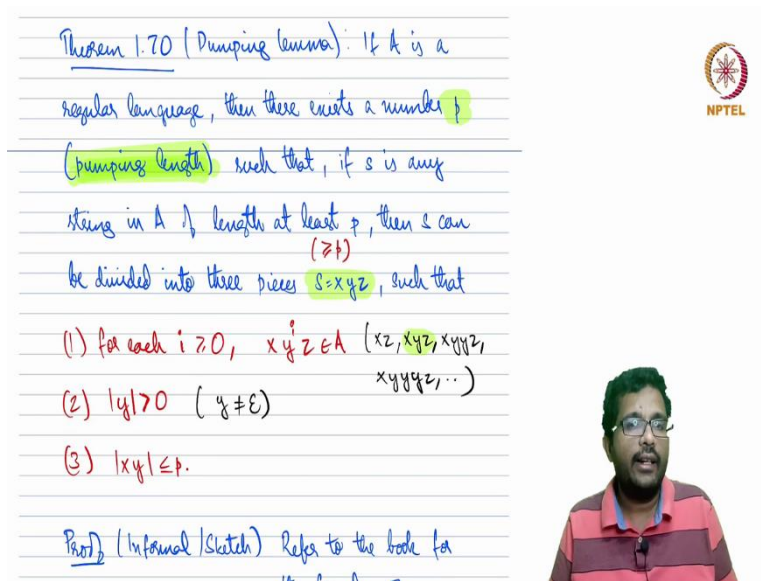 Theorem 1.70 (Pumping lemma): If A is a
NPTEL
regular language, then there exists a number p
(pumping length) such that, if s is any
string in A of length at least p, then s can
(≥p)
be divided into three pieces S=xyz, such that
(1) for each i ≥ 0, xyⁱz ∈ A (xz, xyz, xyyz,
xyyyz, ..)
(2) |y|>0 (y ≠ ε)
(3) |xy| ≤ p.
Proof (Informal/Sketch) Refer to the book for